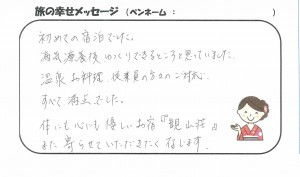 旅の幸せメッセージ （ペンネーム：　　　　　）
初めての宿泊でした。
海気 海養後 ゆっくりできるところと思っていました。
温泉 お料理 従業員の方々のご対応、
すべて 満点でした。
体にも心にも優しいお宿『観山荘』に
また 寄らせていただきたく存じます。